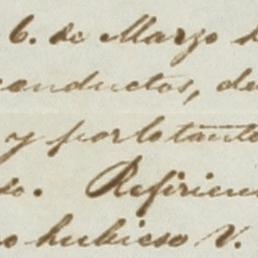 6. de Marzo
conductos, de
y por lo tanto
so. Refirien
o hubiese V.